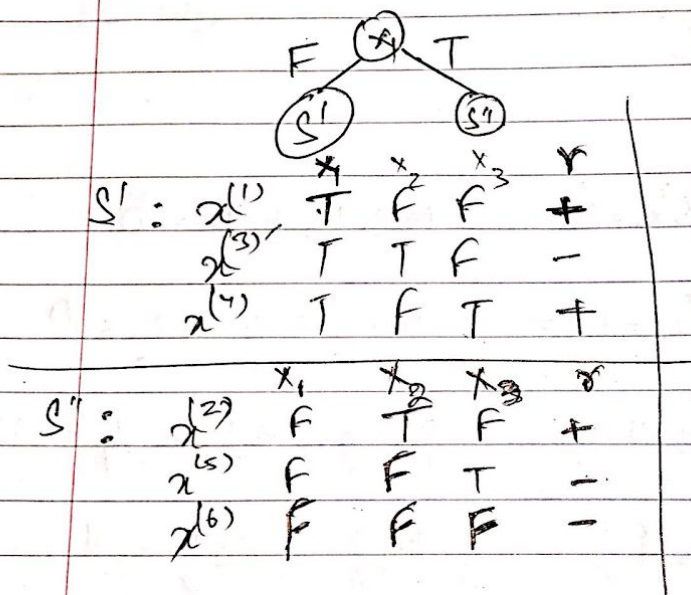 F X₁ T
S' S"
X₁ X₂ X₃ r
S' : x⁽¹⁾ T F F +
x⁽³⁾ T T F -
x⁽⁴⁾ T F T +
X₁ X₂ X₃ r
S" : x⁽²⁾ F T F +
x⁽⁵⁾ F F T -
x⁽⁶⁾ F F F -